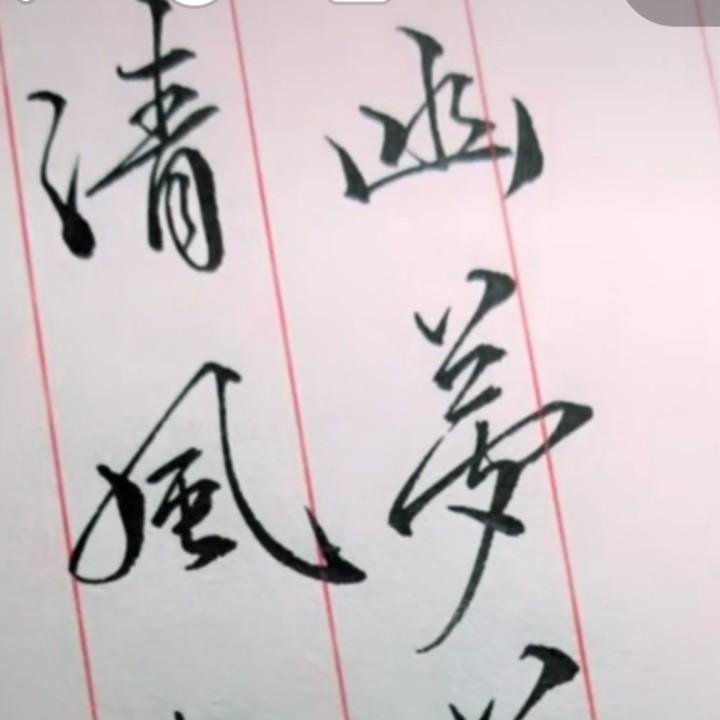 幽夢
清風